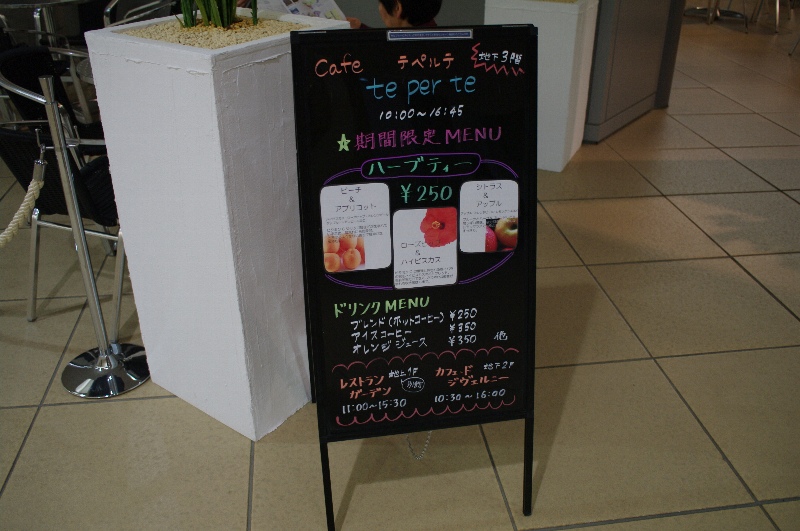 Cafe テペルテ 地下3階
te per te
10:00～16:45
期間限定 MENU
ハーブティー
¥250
ピーチ
&
アプリコット
ローズヒップ
&
ハイビスカス
シトラス
&
アップル
ドリンク MENU
ブレンド (ホットコーヒー) ¥250
アイスコーヒー ¥350
オレンジジュース ¥350 他
レストラン 地上1F
ガーデン 別館
11:00～15:30
カフェ・ド 地下2F
ジヴェルニー
10:30～16:00